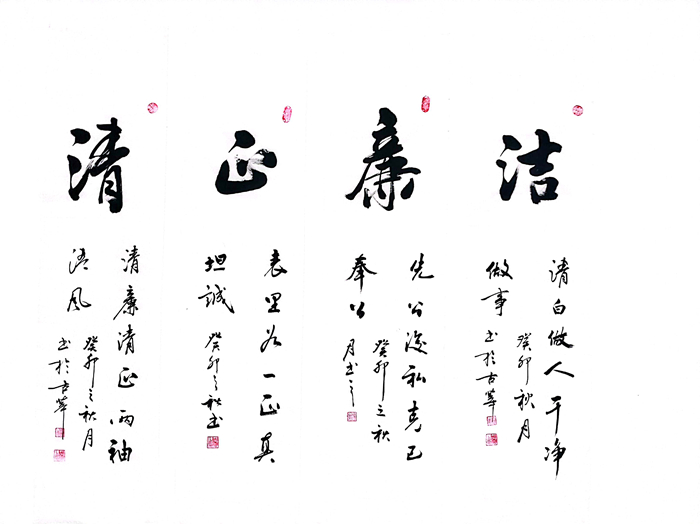 洁
清白做人干净
做事
癸卯秋月
书於古華
廉
先公後私克己
奉公
癸卯之秋
月书之
正
表里如一正真
坦誠
癸卯之秋书
清
清廉清正两袖
清风
癸卯之秋月
书於古華